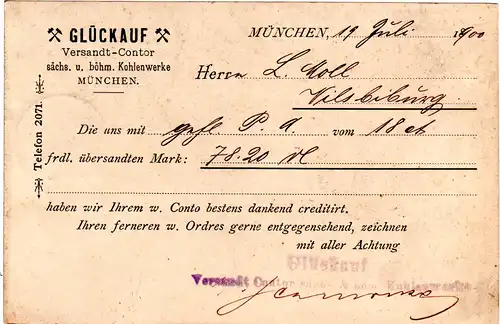 ⚒ GLÜCKAUF ⚒
Versandt-Contor
sächs. u. böhm. Kohlenwerke
MÜNCHEN.
Telefon 2071.
MÜNCHEN, 19 Juli 1900
Herrn L. Moll
Vilsbiburg
Die uns mit gefl P. A. vom 18 ct
frdl. übersandten Mark: 78.20 M
haben wir Ihrem w. Conto bestens dankend creditirt.
Ihren ferneren w. Ordres gerne entgegensehend, zeichnen
mit aller Achtung
Glückauf
Versandt Contor sächs. & böhm. Kohlenwerke